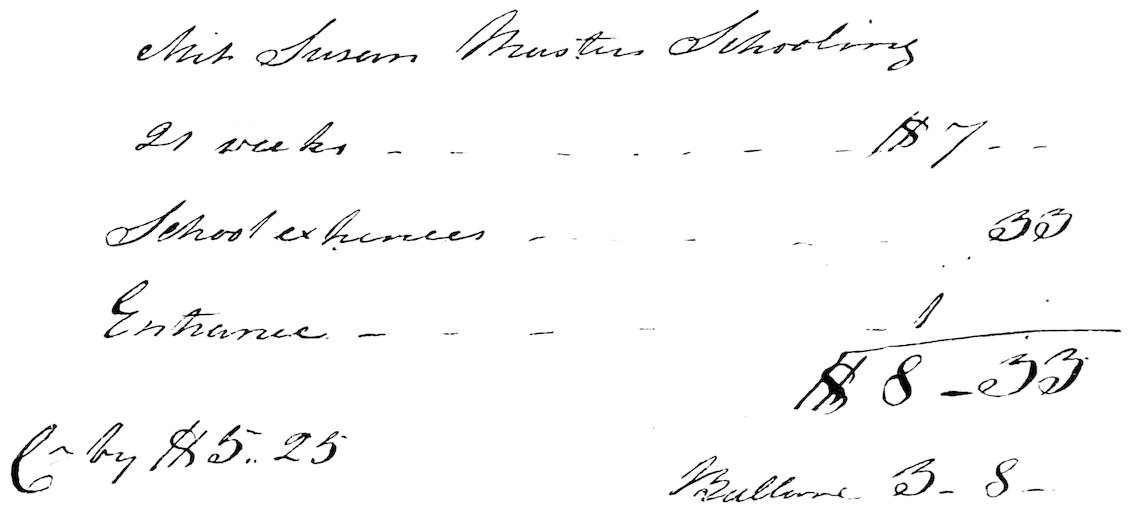 Miss Susan Masters Schooling
21 weeks - - - - - - - $ 7 - -
School expences - - - - - 33
Entrance - - - - - - 1
$ 8 - 33
Cr by $ 5.. 25
Ballance 3 - 8 -